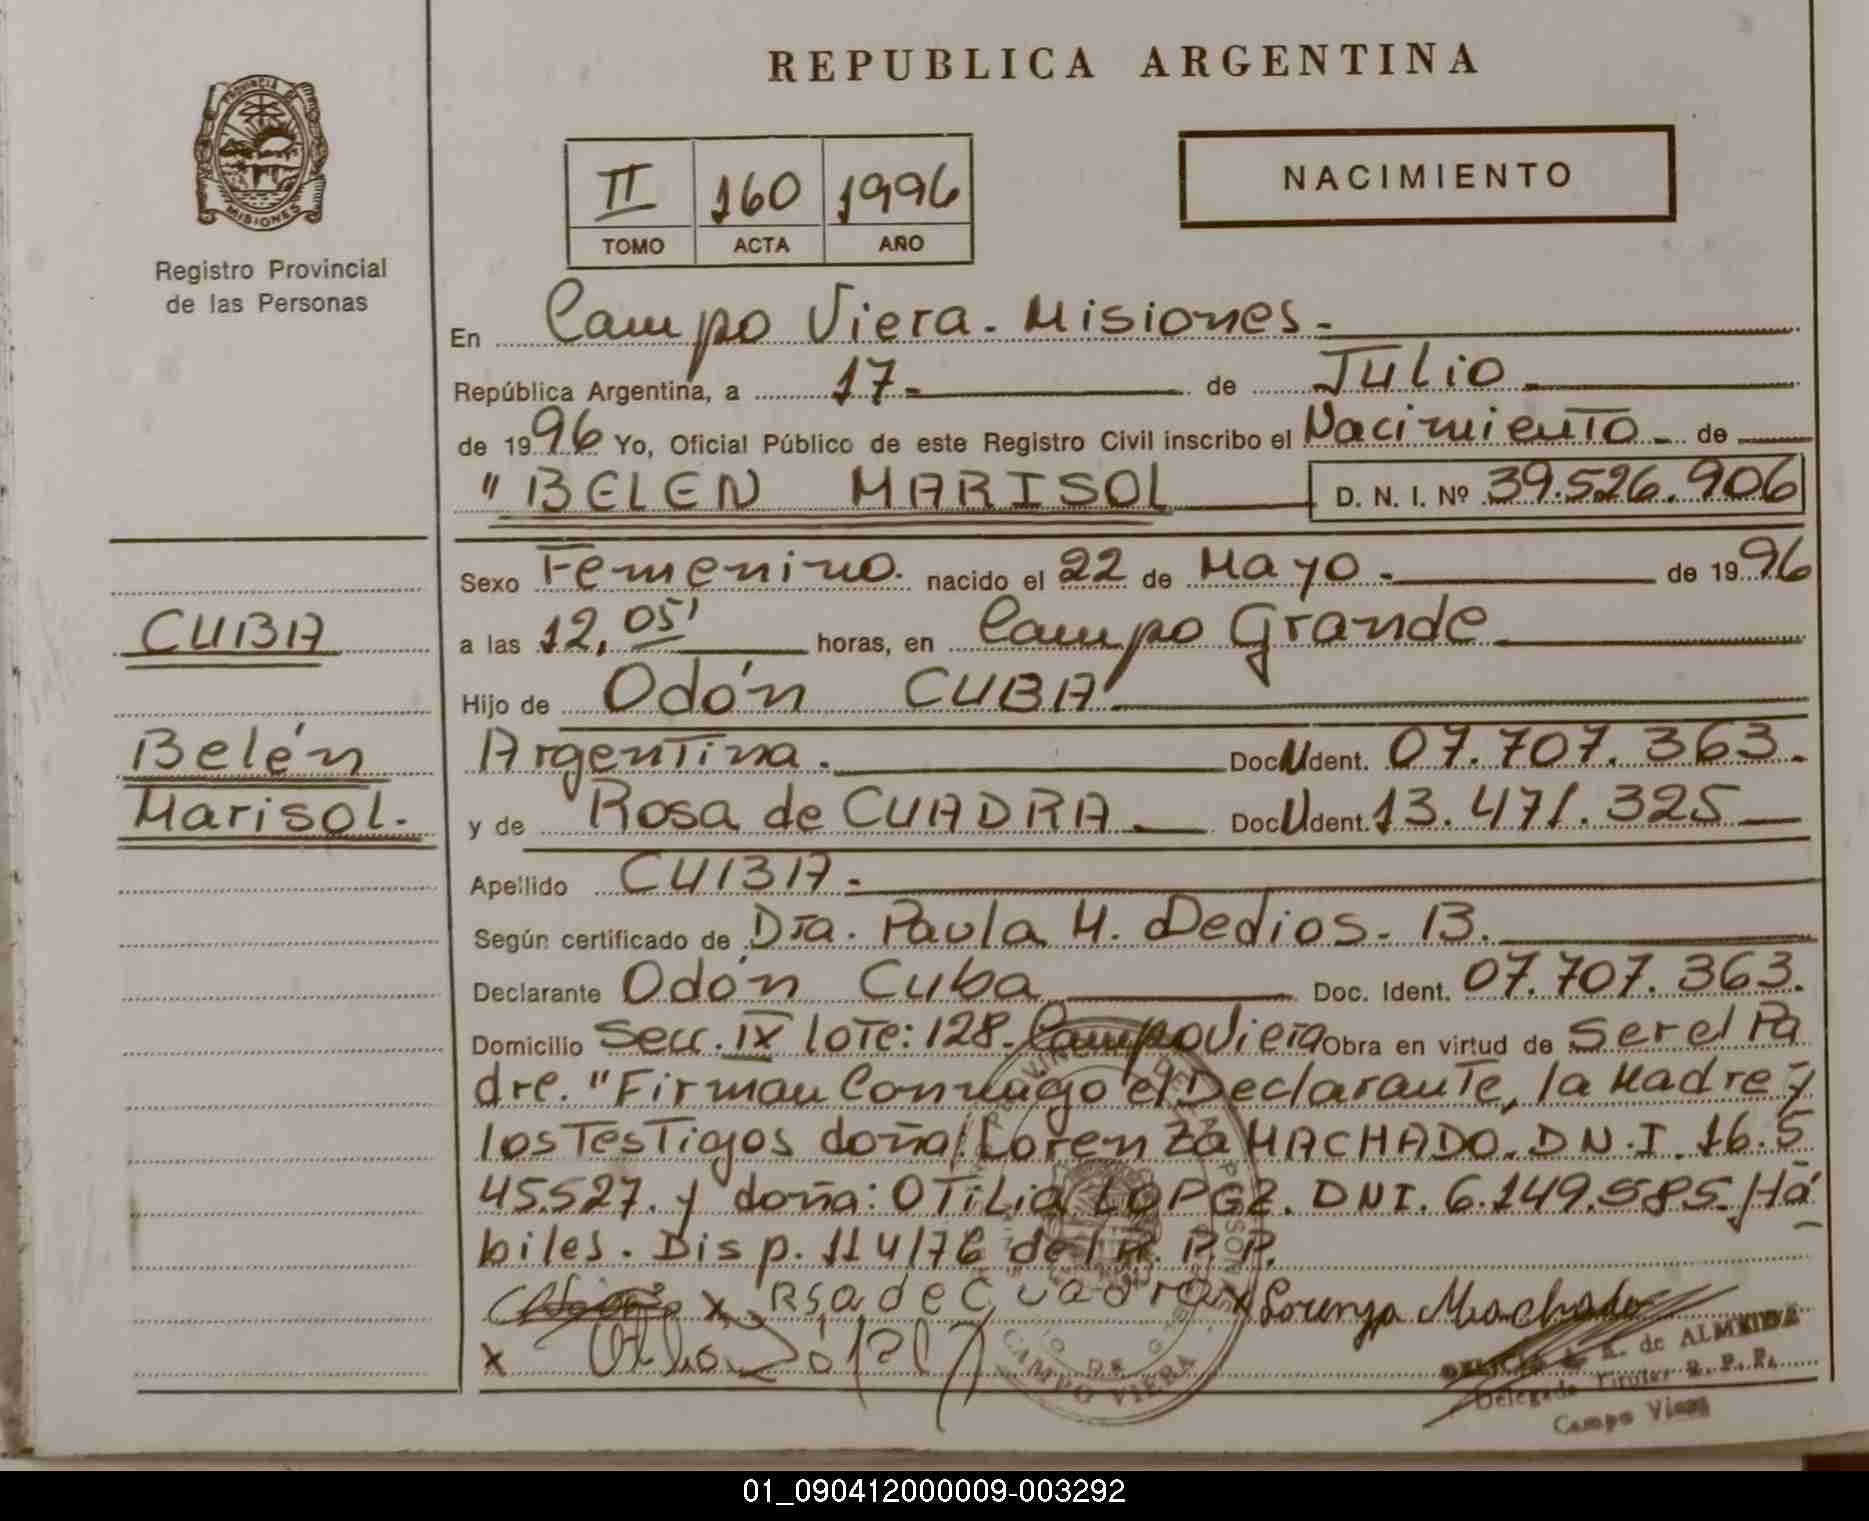 REPUBLICA ARGENTINA
PROVINCIA DE
MISIONES
Registro Provincial
de las Personas
II 160 1996
TOMO ACTA AÑO
NACIMIENTO
En Campo Viera. Misiones.
República Argentina, a 17 de Julio
de 1996 Yo, Oficial Público de este Registro Civil inscribo el Nacimiento de
"BELEN MARISOL D. N. I. Nº 39.526.906
Sexo Femenino. nacido el 22 de Mayo de 1996
a las 12,05' horas, en Campo Grande
Hijo de Odón CUBA
Argentina. Doc. Ident. 07.707.363.
y de Rosa de CUADRA Doc. Ident. 13.471.325
Apellido CUBA.
Según certificado de Dra. Paula M. Dedios. B.
Declarante Odón Cuba Doc. Ident. 07.707.363.
Domicilio Secc. IX lote: 128. Campo Viera Obra en virtud de Ser el Pa
dre. "Firman Conmigo el Declarante, la Madre y
los Testigos doña: Lorenza MACHADO. D N. I. 16.5
45.527. y doña: OTILIA LOPEZ. DNI. 6.149.585. Há
biles. Disp. 114/76 del R. P. P.
x Rsa de Cuadra x Lorenza Machado
x
CUBA
Belén
Marisol.
CAMPO VIERA
de ALMEIDA
Delegada Titular R. P. P.
Campo Viera
01_090412000009-003292